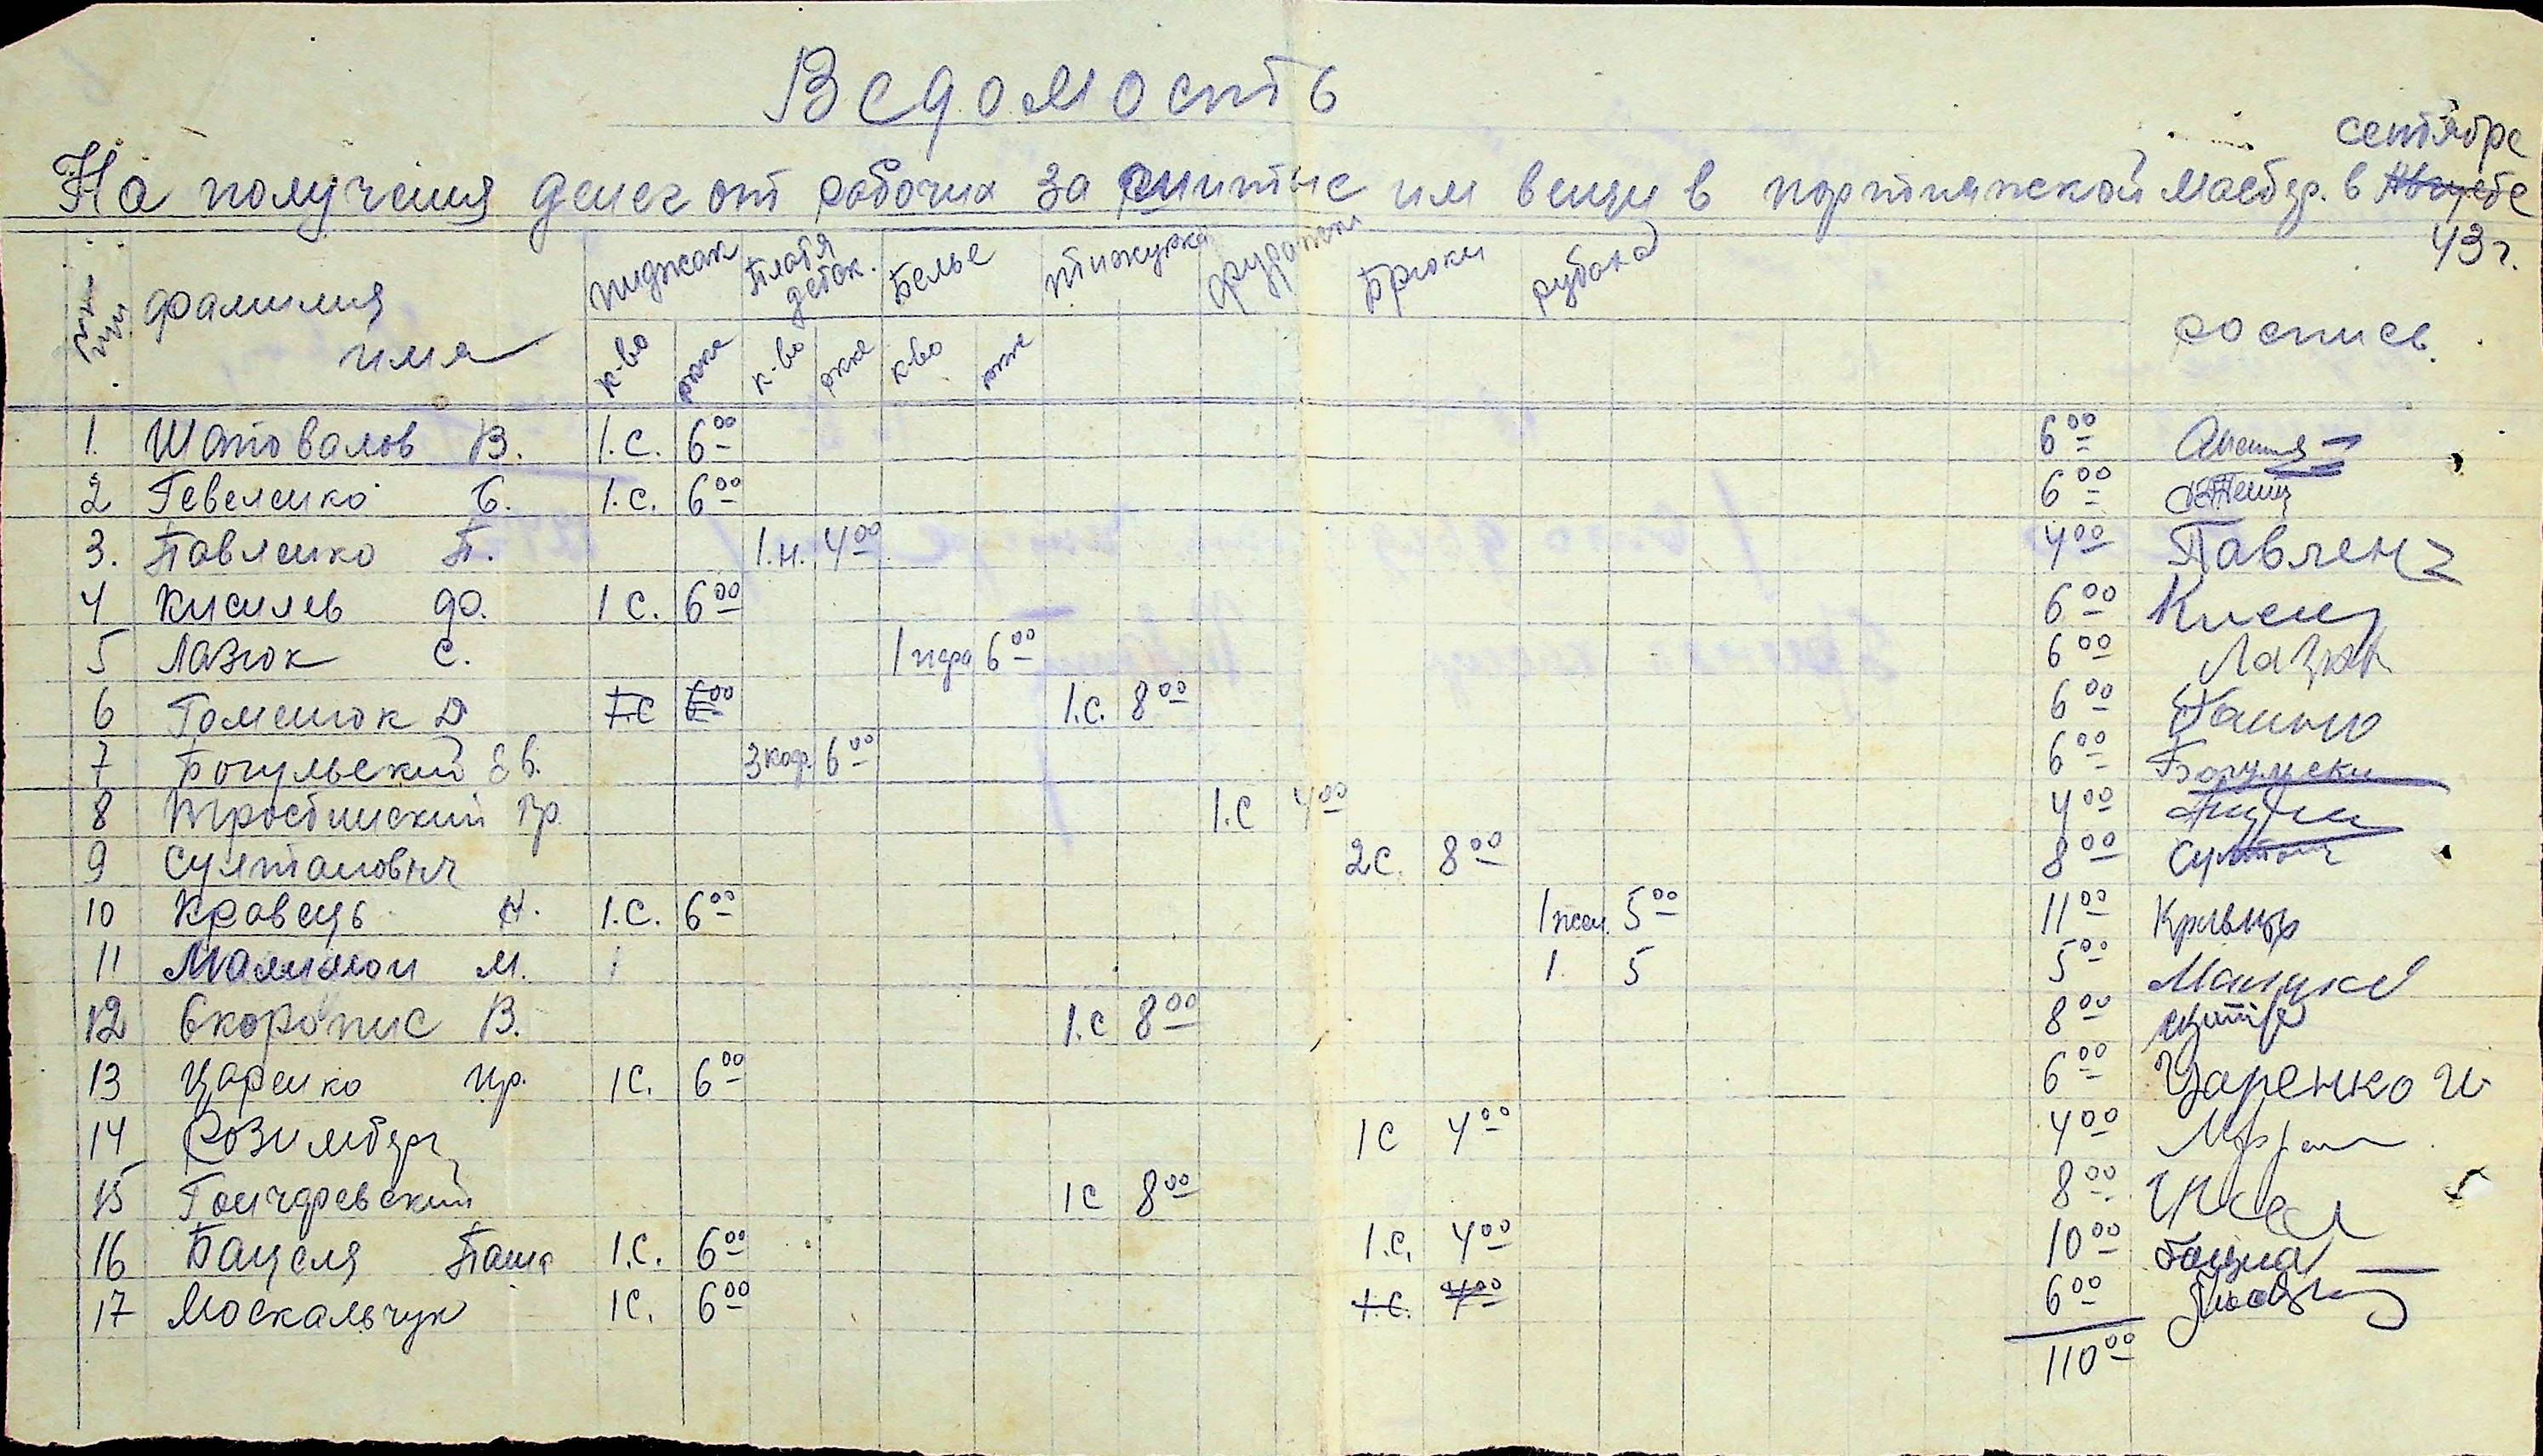 Ведомость
На получения денег от рабочих за сшитые им вещи в портняжской мастер. в ~~Августе~~ сентябре
43 г.
фамилия имя пиджак Платя деток. Белье тижурка Брюки рубаха роспись.
к-во ркк к-во ркк к-во ркк
1. Шаповалов В. 1.С. 6 00 6 00
2 Гевеленко Б. 1.С. 6 00 6 00
3. Павленко П. 1.н. 4 00 4 00 Павлен
4 Кисилев Ф. 1 С. 6 00 6 00 Кисил
5 Лазюк С. 1 пара 6 00 6 00 Лазюк
6 Гоменюк Д ~~1.С~~ ~~6 00~~ 1.С. 8 00 6 00
7 Богульский Ев. 3 коф. 6 00 6 00 Богульски
8 Тростинский Гр. 1.С 4 00 4 00
9 Султанович 2С. 8 00 8 00 Султан
10 Кравець Н. 1.С. 6 00 1 жен. 5 00 11 00 Кравець
11 Малимон М. 1 1. 5 5 00
12 Скоропис В. 1.С 8 00 8 00
13 Царенко Ир. 1С. 6 00 6 00 Царенко И
14 Розимберг 1С 4 00 4 00
15 Гончаревский 1С 8 00 8 00
16 Бацеля Паша 1.С. 6 00 1.С. 4 00 10 00 Бацела
17 Москальчук 1С. 6 00 ~~1.С.~~ ~~4 00~~ 6 00
110 00